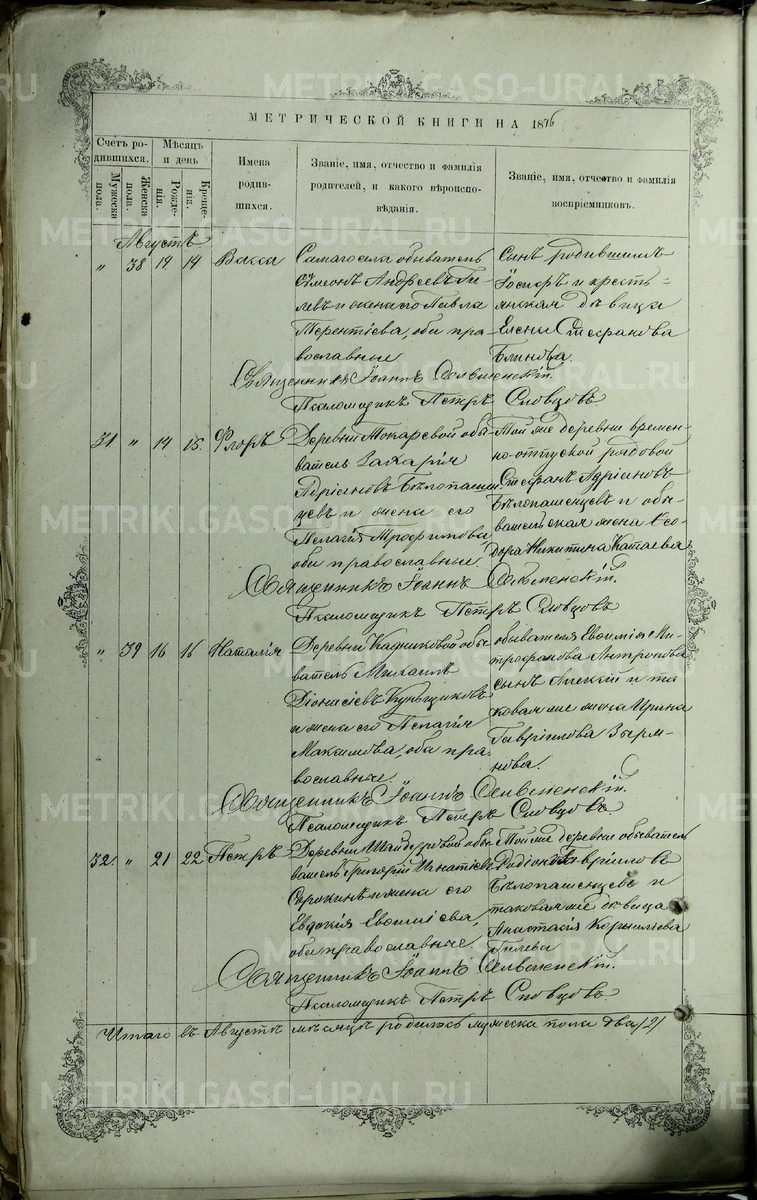 МЕТРИЧЕСКОЙ КНИГИ НА 1876
Счетъ ро-
дившихся.
Мѣсяцъ
и день
Мужеска
пола.
Женска
пола.
Рожде-
нія.
Креще-
нія.
Имена
родив-
шихся.
Званіе, имя, отчество и фамилія
родителей, и какого вѣроиспо-
вѣданія.
Званіе, имя, отчество и фамилія
воспріемниковъ.
Августъ.
„ 38 14 14 Васса
Самаго села обыватель
Симеонъ Андреевъ Ги-
левъ и жена его Павла
Терентіева, оба пра-
вославные
Сынъ родившихъ
Іосифъ и кресть-
янская дѣвица
Елена Стефанова
Блинова.
Священникъ Іоаннъ Селменскій.
Псаломщикъ Петръ Словцовъ
31 „ 14 15 Флоръ
Деревни Токаревой обы-
ватель Захарія
Адріановъ Бѣлопашен-
цевъ и жена его
Пелагія Трофимова
оба православные.
Той же деревни времен-
но-отпускной рядовой
Стефанъ Адріановъ
Бѣлопашенцевъ и обы-
вательская жена Ѳео-
дора Никитина Катаева
Священникъ Іоаннъ Селменскій.
Псаломщикъ Петръ Словцовъ
„ 39 16 16 Наталія
Деревни Кадниковой обы-
ватель Михаилъ
Діонисіевъ Кунщиковъ
и жена его Пелагія
Максимова, оба пра-
вославные.
обывателя Евѳимія Ми-
трофанова Антропова
сынъ Алексій и та-
коваяже жена Ирина
Гавріилова Зырян-
нова.
Священникъ Іоаннъ Селменскій.
Псаломщикъ Петръ Словцовъ.
32. „ 21 22 Петръ
Деревни Шайдуровой обы-
ватель Григорій Игнатіевъ
Сорокинъ и жена его
Евдокія Евѳиміева,
оба православные.
Той же деревни обыватель
Родіонъ Гавріиловъ
Бѣлопашенцевъ и
таковаяже дѣвица
Анастасія Корниліева
Гилева
Священникъ Іоаннъ Селменскій.
Псаломщикъ Петръ Словцовъ.
Итого въ Августѣ мѣсяцѣ родилось мужеска пола два /2/
METRIKI.GASO-URAL.RU